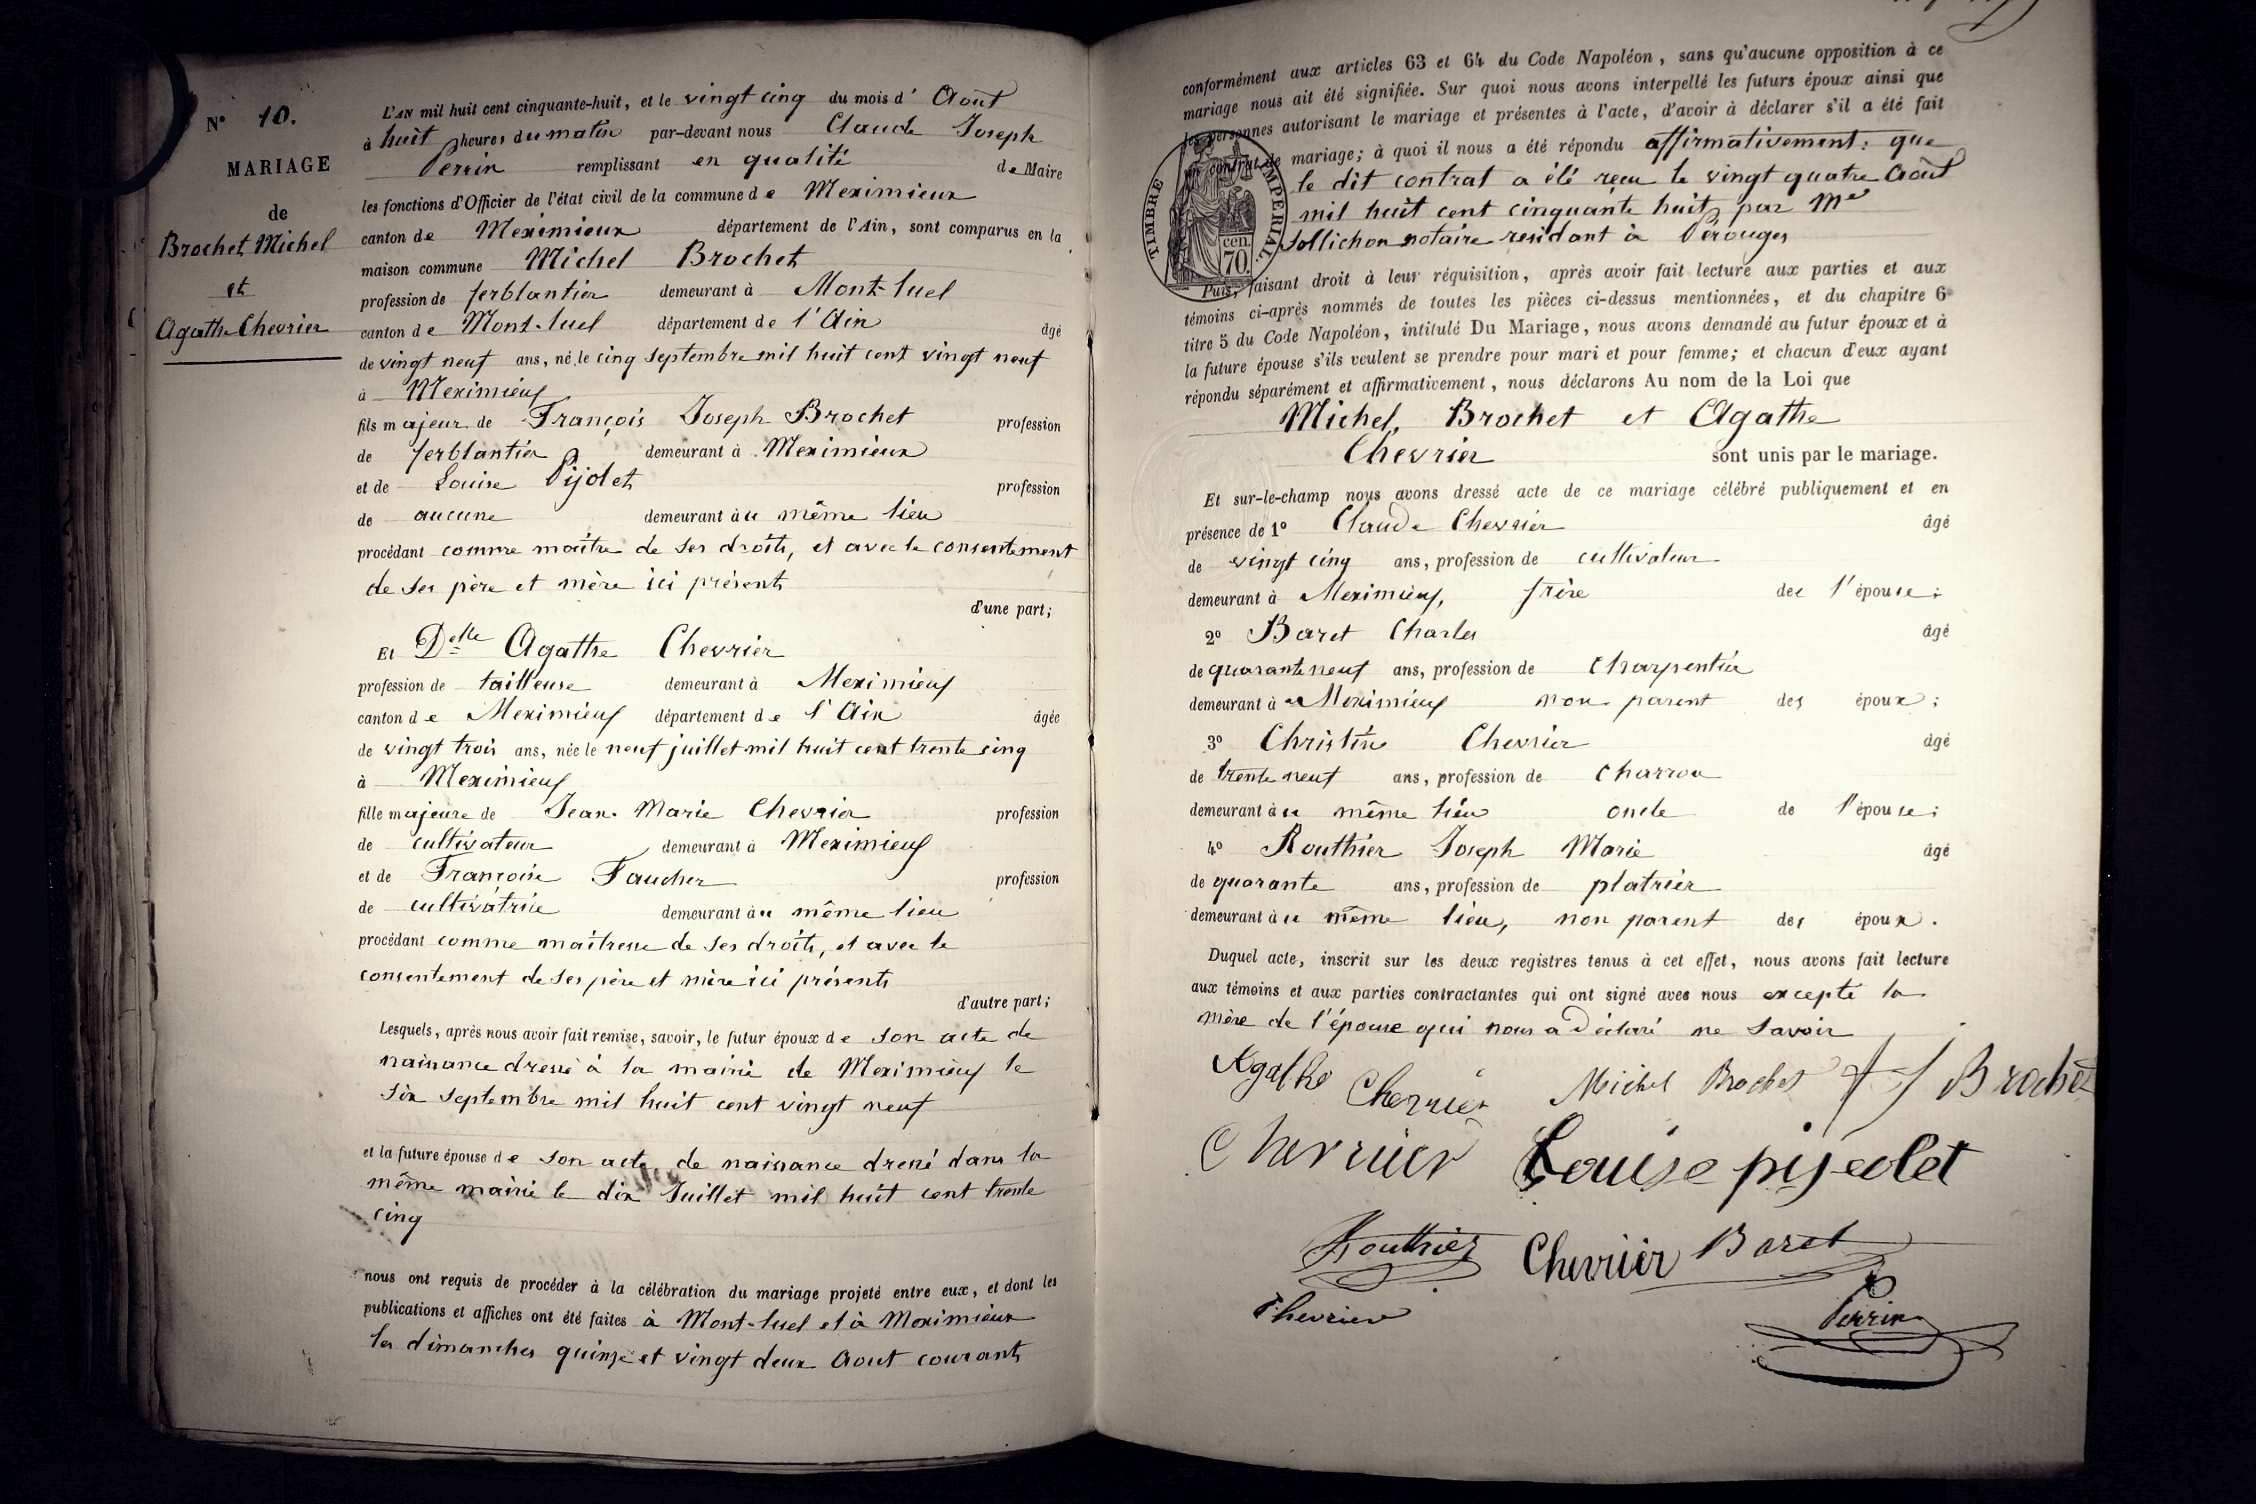 N° 10.
MARIAGE
de
Brochet Michel
et
Agathe Chevrier
L'AN mil huit cent cinquante-huit, et le vingt cinq du mois d' Août
à huit heures du matin par-devant nous Claude Joseph
Perrin remplissant en qualité de Maire
les fonctions d'Officier de l'état civil de la commune de Meximieux
canton de Meximieux département de l'Ain, sont comparus en la
maison commune Michel Brochet
profession de ferblantier demeurant à Mont-luel
canton de Mont-luel département de l'Ain âgé
de vingt neuf ans, né le cinq septembre mil huit cent vingt neuf
à Meximieux
fils majeur de François Joseph Brochet profession
de ferblantier demeurant à Meximieux
et de Louise Pijolet profession
de aucune demeurant au même lieu
procédant comme maître de ses droits, et avec le consentement
de ses père et mère ici présents
d'une part;
Et Delle Agathe Chevrier
profession de tailleuse demeurant à Meximieux
canton de Meximieux département de l'Ain âgée
de vingt trois ans, née le neuf juillet mil huit cent trente cinq
à Meximieux
fille majeure de Jean-Marie Chevrier profession
de cultivateur demeurant à Meximieux
et de Françoise Faucher profession
de cultivatrice demeurant au même lieu
procédant comme maîtresse de ses droits, et avec le
consentement de ses père et mère ici présents
d'autre part;
Lesquels, après nous avoir fait remise, savoir, le futur époux de son acte de
naissance dressé à la mairie de Meximieux le
six septembre mil huit cent vingt neuf
et la future épouse de son acte de naissance dressé dans la
même mairie le dix Juillet mil huit cent trente
cinq
nous ont requis de procéder à la célébration du mariage projeté entre eux, et dont les
publications et affiches ont été faites à Mont-luel et à Meximieux
les dimanches quinze et vingt deux Aout courants
conformément aux articles 63 et 64 du Code Napoléon, sans qu'aucune opposition à ce
mariage nous ait été signifiée. Sur quoi nous avons interpellé les futurs époux ainsi que
les personnes autorisant le mariage et présentes à l'acte, d'avoir à déclarer s'il a été fait
un contrat de mariage; à quoi il nous a été répondu affirmativement: que
le dit contrat a été reçu le vingt quatre Août
mil huit cent cinquante huit par Me
Jollichon notaire résidant à Pérouges
TIMBRE IMPÉRIAL
cen.
70.
Puis, faisant droit à leur réquisition, après avoir fait lecture aux parties et aux
témoins ci-après nommés de toutes les pièces ci-dessus mentionnées, et du chapitre 6
titre 5 du Code Napoléon, intitulé Du Mariage, nous avons demandé au futur époux et à
la future épouse s'ils veulent se prendre pour mari et pour femme; et chacun d'eux ayant
répondu séparément et affirmativement, nous déclarons Au nom de la Loi que
Michel, Brochet et Agathe
Chevrier sont unis par le mariage.
Et sur-le-champ nous avons dressé acte de ce mariage célébré publiquement et en
présence de 1° Claude Chevrier âgé
de vingt cinq ans, profession de cultivateur
demeurant à Meximieux, frère de l'épouse;
2° Baret Charles âgé
de quarante neuf ans, profession de Charpentier
demeurant à Meximieux non parent des époux;
3° Christin Chevrier âgé
de trente neuf ans, profession de Charron
demeurant au même lieu oncle de l'épouse;
4° Routhier Joseph Marie âgé
de quarante ans, profession de platrier
demeurant au même lieu, non parent des époux.
Duquel acte, inscrit sur les deux registres tenus à cet effet, nous avons fait lecture
aux témoins et aux parties contractantes qui ont signé avec nous excepté la
mère de l'épouse qui nous a déclaré ne savoir
Agathe Chevrier Michel Brochet f J Brochet
Chevrier Louise pijeolet
Routhier Chevrier Baret
Chevrier Perrin